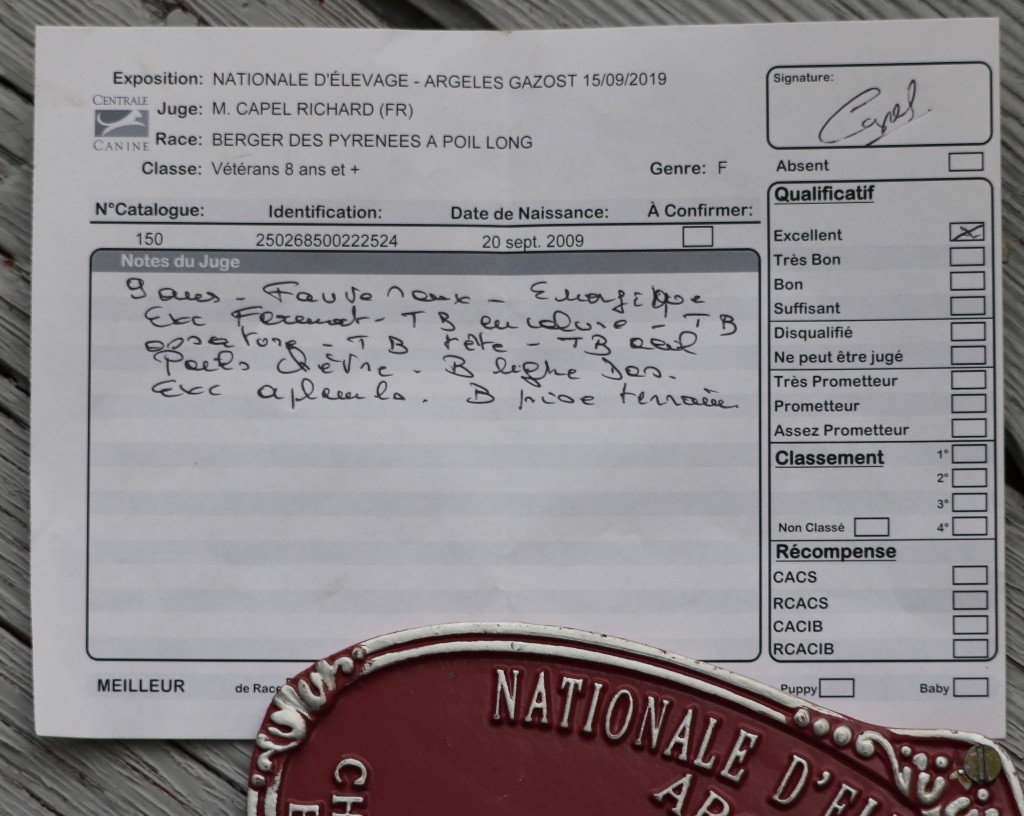 Exposition: NATIONALE D'ÉLEVAGE - ARGELES GAZOST 15/09/2019
CENTRALE CANINE
Juge: M. CAPEL RICHARD (FR)
Race: BERGER DES PYRENEES A POIL LONG
Classe: Vétérans 8 ans et +
Genre: F
N°Catalogue: Identification: Date de Naissance: À Confirmer:
150 250268500222524 20 sept. 2009
Notes du Juge
9 ans - Fauve - Energique
Exc Format - TB encolure - TB
ossature - TB tête - TB œil
Poils chèvre. B ligne Dos.
Exc aplombs. B prise terrain
Signature:
Capel
Absent
Qualificatif
Excellent
Très Bon
Bon
Suffisant
Disqualifié
Ne peut être jugé
Très Prometteur
Prometteur
Assez Prometteur
Classement 1°
2°
3°
Non Classé 4°
Récompense
CACS
RCACS
CACIB
RCACIB
MEILLEUR de Race Puppy Baby
NATIONALE D'ÉL
AR
CH